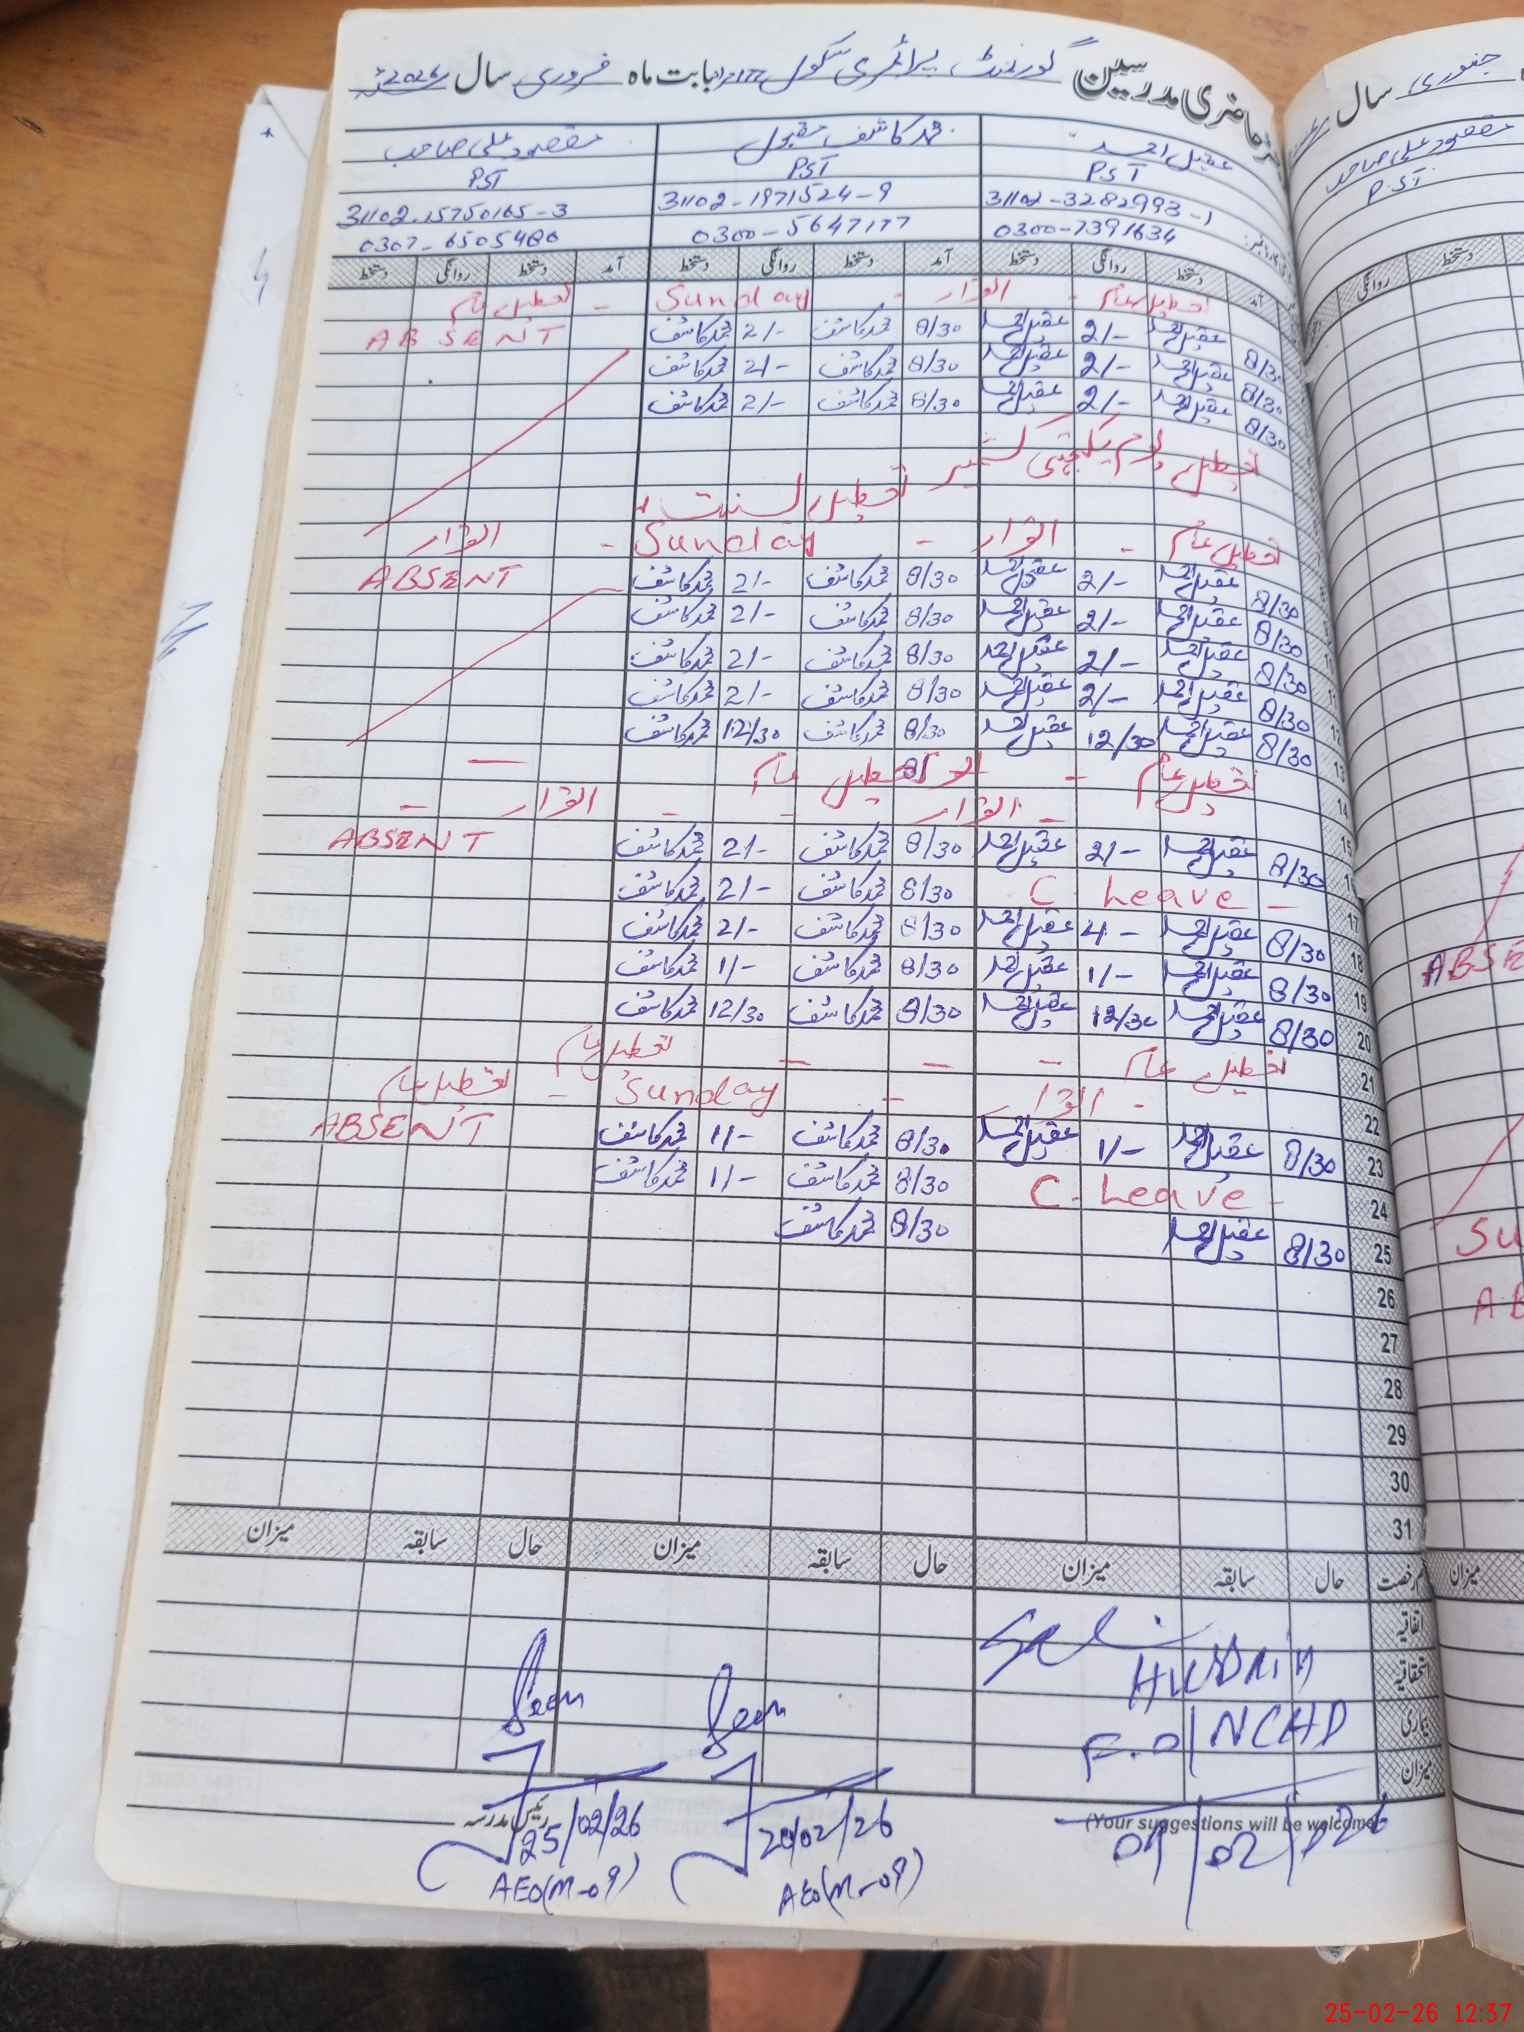 حاضری مدرسین گورنمنٹ پرائمری سکول بابت ماہ فروری سال 2026ء
عقیل احمد محمد کاشف مقبول مقصود علی صاحب
PST PST PST
31102-3282993-1 31102-1971524-9 31102-15750165-3
0300-7391634 0300-5647177 0307-6505480
آمد دستخط روانگی دستخط آمد دستخط روانگی دستخط آمد دستخط روانگی دستخط
تعطیل عام - اتوار - Sunday - تعطیل عام
8/30 عقیل احمد 2/- عقیل احمد 8/30 محمد کاشف 2/- محمد کاشف ABSENT
8/30 عقیل احمد 2/- عقیل احمد 8/30 محمد کاشف 2/- محمد کاشف
8/30 عقیل احمد 2/- عقیل احمد 8/30 محمد کاشف 2/- محمد کاشف
تعطیل یوم یکجہتی کشمیر
تعطیل بسنت
تعطیل عام - اتوار - Sunday - اتوار
8/30 عقیل احمد 2/- عقیل احمد 8/30 محمد کاشف 2/- محمد کاشف ABSENT
8/30 عقیل احمد 2/- عقیل احمد 8/30 محمد کاشف 2/- محمد کاشف
8/30 عقیل احمد 2/- عقیل احمد 8/30 محمد کاشف 2/- محمد کاشف
8/30 عقیل احمد 2/- عقیل احمد 8/30 محمد کاشف 2/- محمد کاشف
13 8/30 عقیل احمد 12/30 عقیل احمد 8/30 محمد کاشف 12/30 محمد کاشف
14 تعطیل عام - تعطیل عام —
15 - اتوار - - اتوار -
16 8/30 عقیل احمد 2/- عقیل احمد 8/30 محمد کاشف 2/- محمد کاشف ABSENT
17 C Leave - 8/30 محمد کاشف 2/- محمد کاشف
18 8/30 عقیل احمد عقیل احمد 8/30 محمد کاشف 2/- محمد کاشف
19 8/30 عقیل احمد 1/- عقیل احمد 8/30 محمد کاشف 1/- محمد کاشف
20 8/30 عقیل احمد 12/30 عقیل احمد 8/30 محمد کاشف 12/30 محمد کاشف
21 تعطیل عام - - - تعطیل عام
22 - اتوار - Sunday - تعطیل عام
23 8/30 عقیل احمد 1/- عقیل احمد 8/30 محمد کاشف 1/- محمد کاشف ABSENT
24 C. Leave - 8/30 محمد کاشف 1/- محمد کاشف
25 8/30 عقیل احمد 8/30 محمد کاشف
26
27
28
29
30
31
رخصت حال سابقہ میزان حال سابقہ میزان حال سابقہ میزان
اتفاقیہ
استحقاقیہ
بیماری
میزان
F.O/NCHD
Seen Seen
(Your suggestions will be welcome)
رئیس مدرسہ
25/02/26 20/02/26
AEO(M-09) AEO(M-09)
جنوری سال
مقصود علی صاحب
PST
روانگی دستخط
ABSE
Su
AB
میزان
25-02-26 12:37